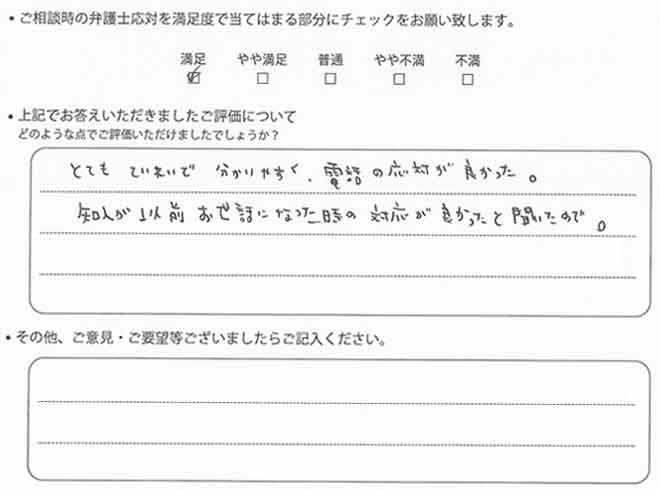 • ご相談時の弁護士応対を満足度で当てはまる部分にチェックをお願い致します。
満足 やや満足 普通 やや不満 不満
☑ □ □ □ □
• 上記でお答えいただきましたご評価について
どのような点でご評価いただけましたでしょうか？
とても ていねいで 分かりやすく、電話の応対が良かった。
知人が以前お世話になった時の対応が良かったと聞いたので。
• その他、ご意見・ご要望等ございましたらご記入ください。